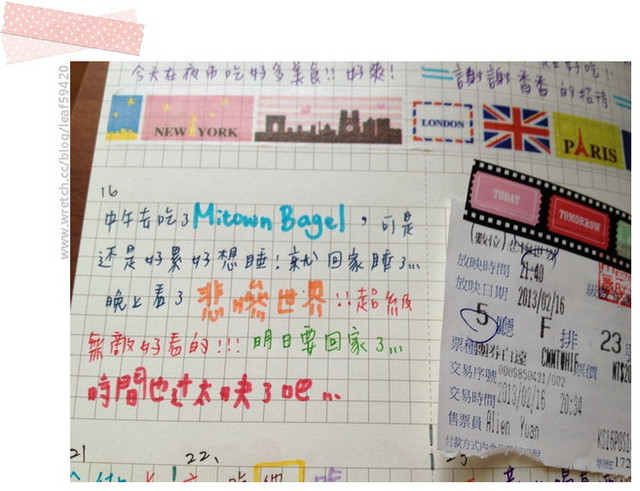 www.wretch.cc/blog/leaf59420
今天在夜市吃好多美食!! 好爽!
好吃!!
謝謝香香的招待
NEW YORK
LONDON
PARIS
16
中午去吃了Mitown Bagel，可是
還是好累好想睡！就回家睡了...
晚上看了悲慘世界!!超級
無敵好看的!!!明日要回家了...
時間也过太快了吧...
TODAY
TOMORROW
(數位)悲慘世界
放映時間 21:40
放映日期 2013/02/16
5廳 F排 23
票價 NT$
交易序號 0009850431/002
交易時間 2013/02/16 20:34
售票員 Alien Yuan
付款方式
21
22、